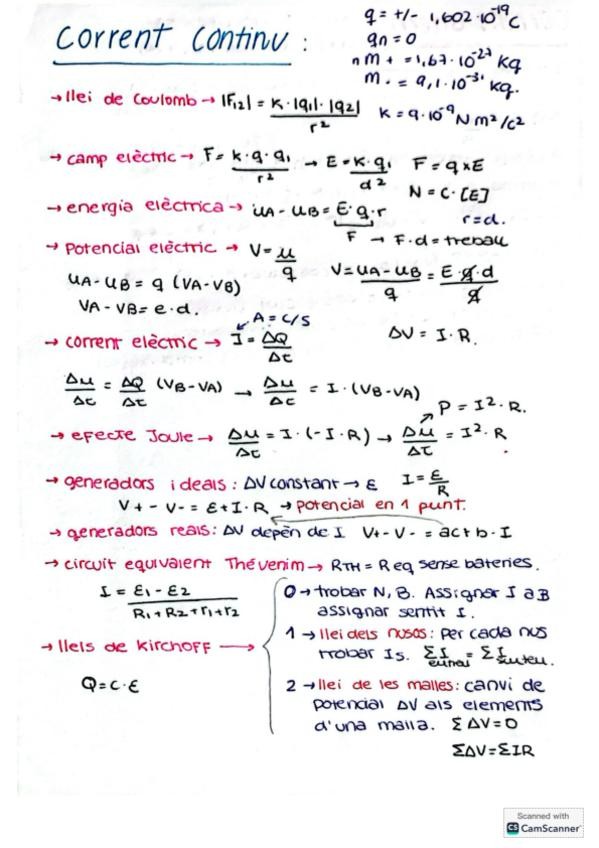 Corrent Continu :
q = +/- 1,602·10⁻¹⁹ C
qn = 0
n m+ = 1,67·10⁻²⁷ Kg
m- = 9,1·10⁻³¹ Kg.
→ llei de Coulomb → |F12| = K·|q1|·|q2| / r² K = 9·10⁻⁹ N m²/C²
→ camp elèctric → F = k·q·q1 / r² → E = K·q1 / d² F = q×E
N = C·[E]
→ energia elèctrica → uA - uB = E·q·r r = d.
F → F·d = treball
→ Potencial elèctric → V = u / q V = uA - uB / q = E·q·d / q
uA - uB = q (VA - VB)
VA - VB = e·d.
A = C/S
→ corrent elèctric → I = ΔQ / Δt ΔV = I·R.
Δu / Δt = ΔQ / Δt (VB - VA) → Δu / Δt = I·(VB - VA)
P = I²·R.
→ efecte Joule → Δu / Δt = I·(-I·R) → Δu / Δt = I²·R
→ generadors ideals : ΔV constant → ε I = ε / R
V+ - V- = ε + I·R → potencial en 1 punt.
→ generadors reals : ΔV depèn de I V+ - V- = a + b·I
→ circuit equivalent Thévenim → RTH = Req sense bateries.
I = ε1 - ε2 / R1 + R2 + r1 + r2
→ lleis de Kirchoff →
0 → trobar N, B. Assignar I a B
assignar sentit I.
1 → llei dels nusos : Per cada nus
trobar Is. Σ I = Σ I
Q = C·ε
2 → llei de les malles : canvi de
potencial ΔV als elements
d'una malla. Σ ΔV = 0
ΣΔV = ΣIR
Scanned with
CS CamScanner